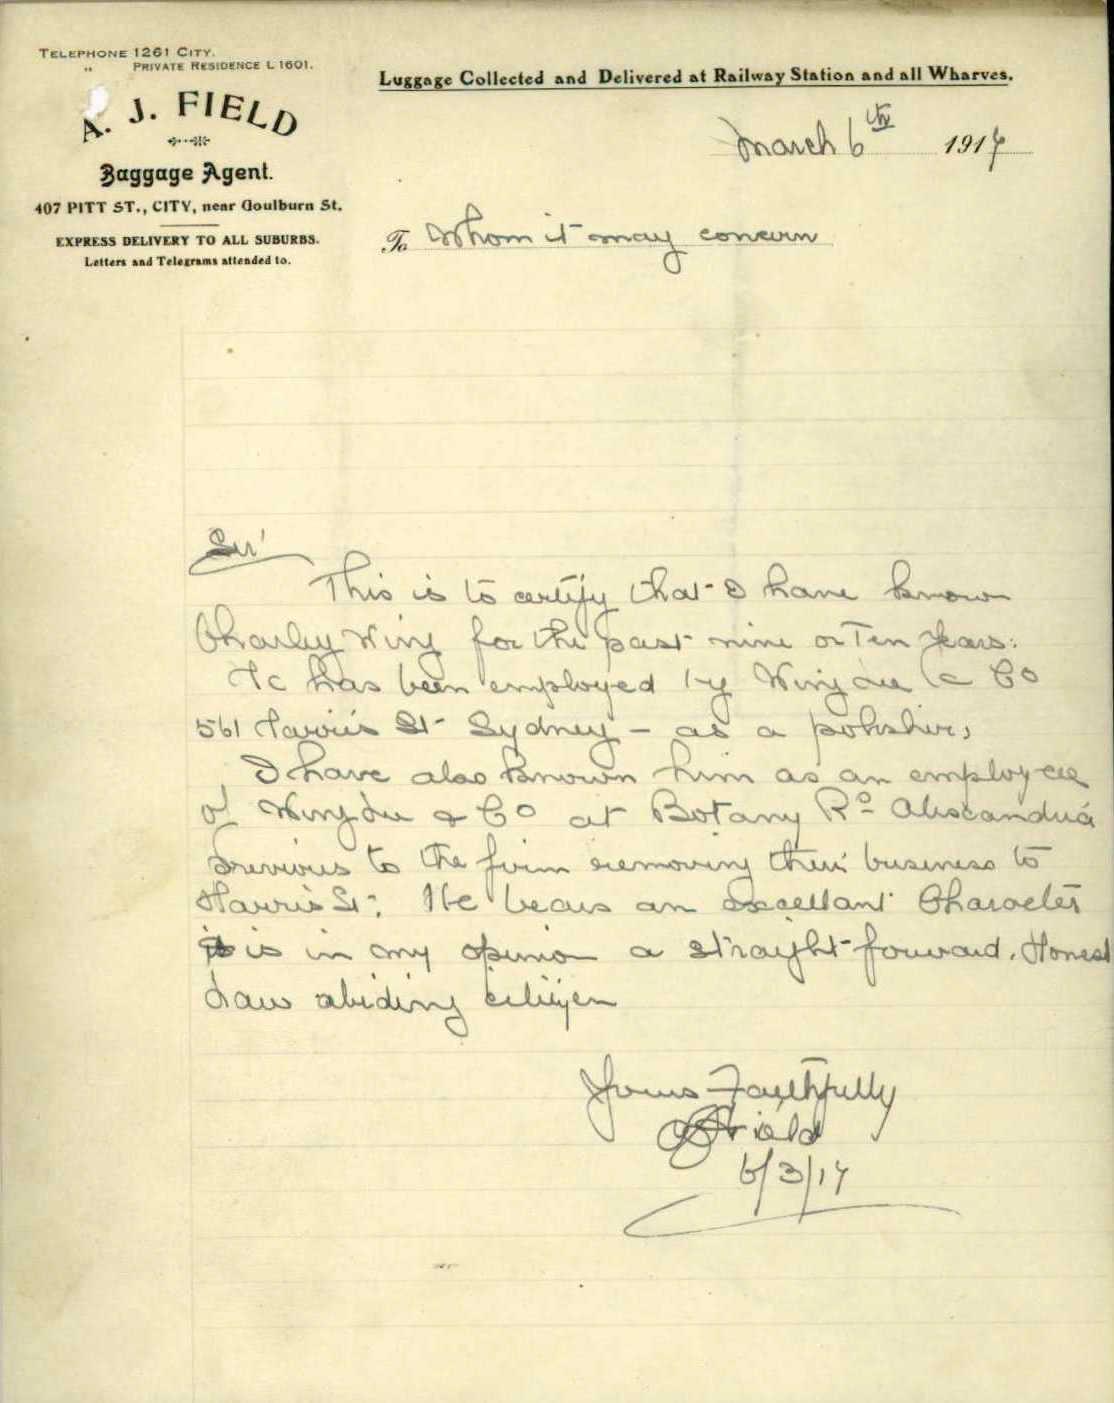 TELEPHONE 1261 CITY.
„ PRIVATE RESIDENCE L 1601.
A. J. FIELD
Baggage Agent.
407 PITT ST., CITY, near Goulburn St.
EXPRESS DELIVERY TO ALL SUBURBS.
Letters and Telegrams attended to.
Luggage Collected and Delivered at Railway Station and all Wharves.
March 6th 1917
To Whom it may concern
Sir
This is to certify that I have known
Charley Wing for the past nine or Ten years:
He has been employed by & Co
561 Harris St Sydney – as a polisher,
I have also known him as an employee
of & Co at Botany Rd Alexandria
previous to the firm removing their business to
Harris St: He bears an excellant Character
is in my opinion a straight-forward. Honest
Law abiding citizen
Yours Faithfully
AJField
6/3/17